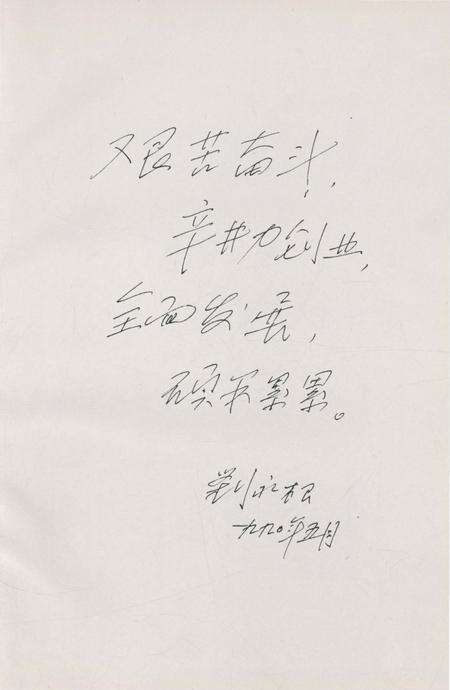 艰苦奋斗，
辛勤创业，
全面发展，
硕果累累。
劉
一九九〇年五月